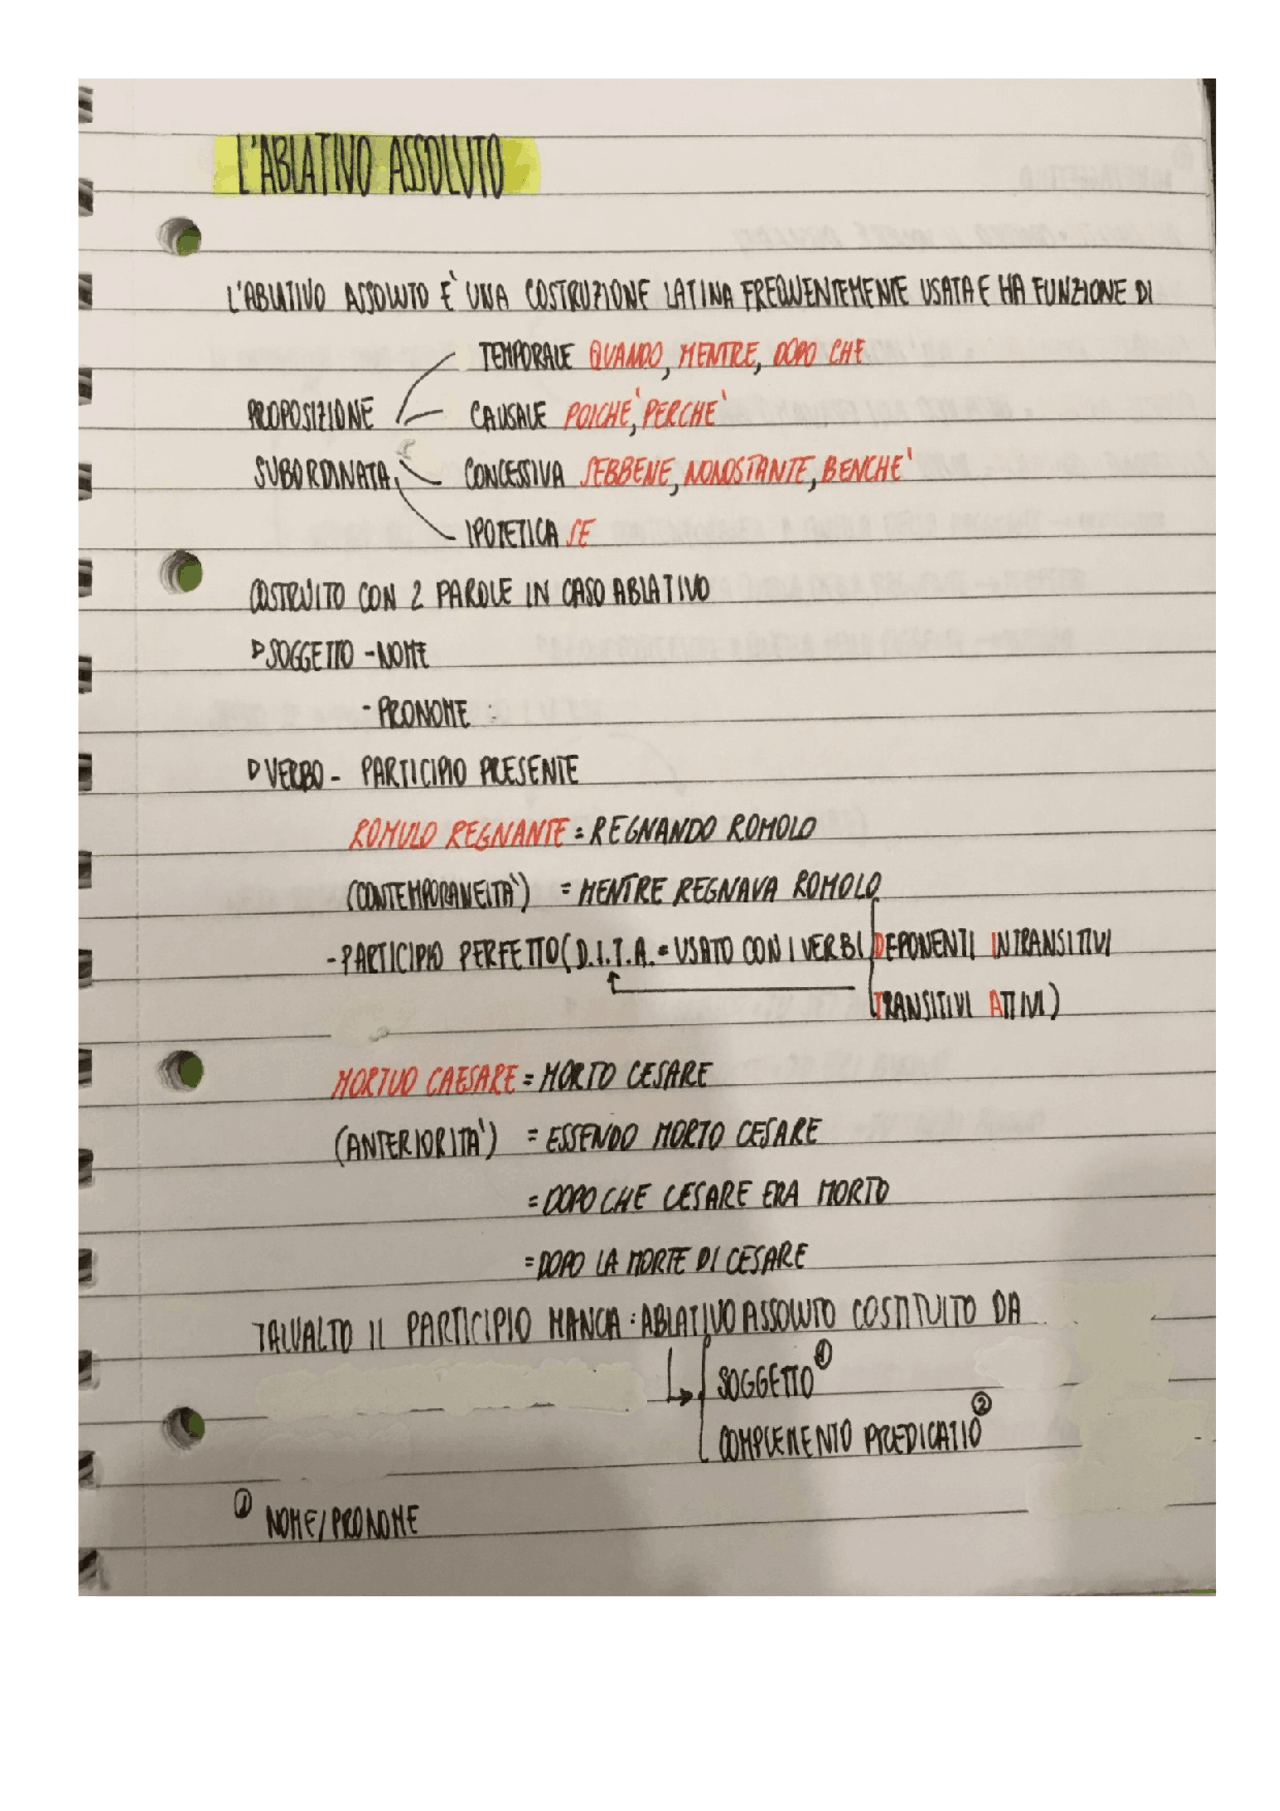 L'ABLATIVO ASSOLUTO
L'ABLATIVO ASSOLUTO È UNA COSTRUZIONE LATINA FREQUENTEMENTE USATA E HA FUNZIONE DI
TEMPORALE QUANDO, MENTRE, DOPO CHE
PROPOSIZIONE CAUSALE POICHE', PERCHE'
SUBORDINATA CONCESSIVA SEBBENE, NONOSTANTE, BENCHE'
IPOTETICA SE
COSTRUITO CON 2 PAROLE IN CASO ABLATIVO
▷SOGGETTO - NOME
- PRONOME
▷VERBO - PARTICIPIO PRESENTE
ROMULO REGNANTE = REGNANDO ROMOLO
(CONTEMPORANEITA') = MENTRE REGNAVA ROMOLO
- PARTICIPIO PERFETTO (D.I.T.A. = USATO CON I VERBI DEPONENTI INTRANSITIVI
TRANSITIVI ATTIVI)
MORTUO CAESARE = MORTO CESARE
(ANTERIORITA') = ESSENDO MORTO CESARE
= DOPO CHE CESARE ERA MORTO
= DOPO LA MORTE DI CESARE
TALVALTO IL PARTICIPIO MANCA : ABLATIVO ASSOLUTO COSTITUITO DA
SOGGETTO ①
COMPLEMENTO PREDICATIO ②
① NOME/PRONOME